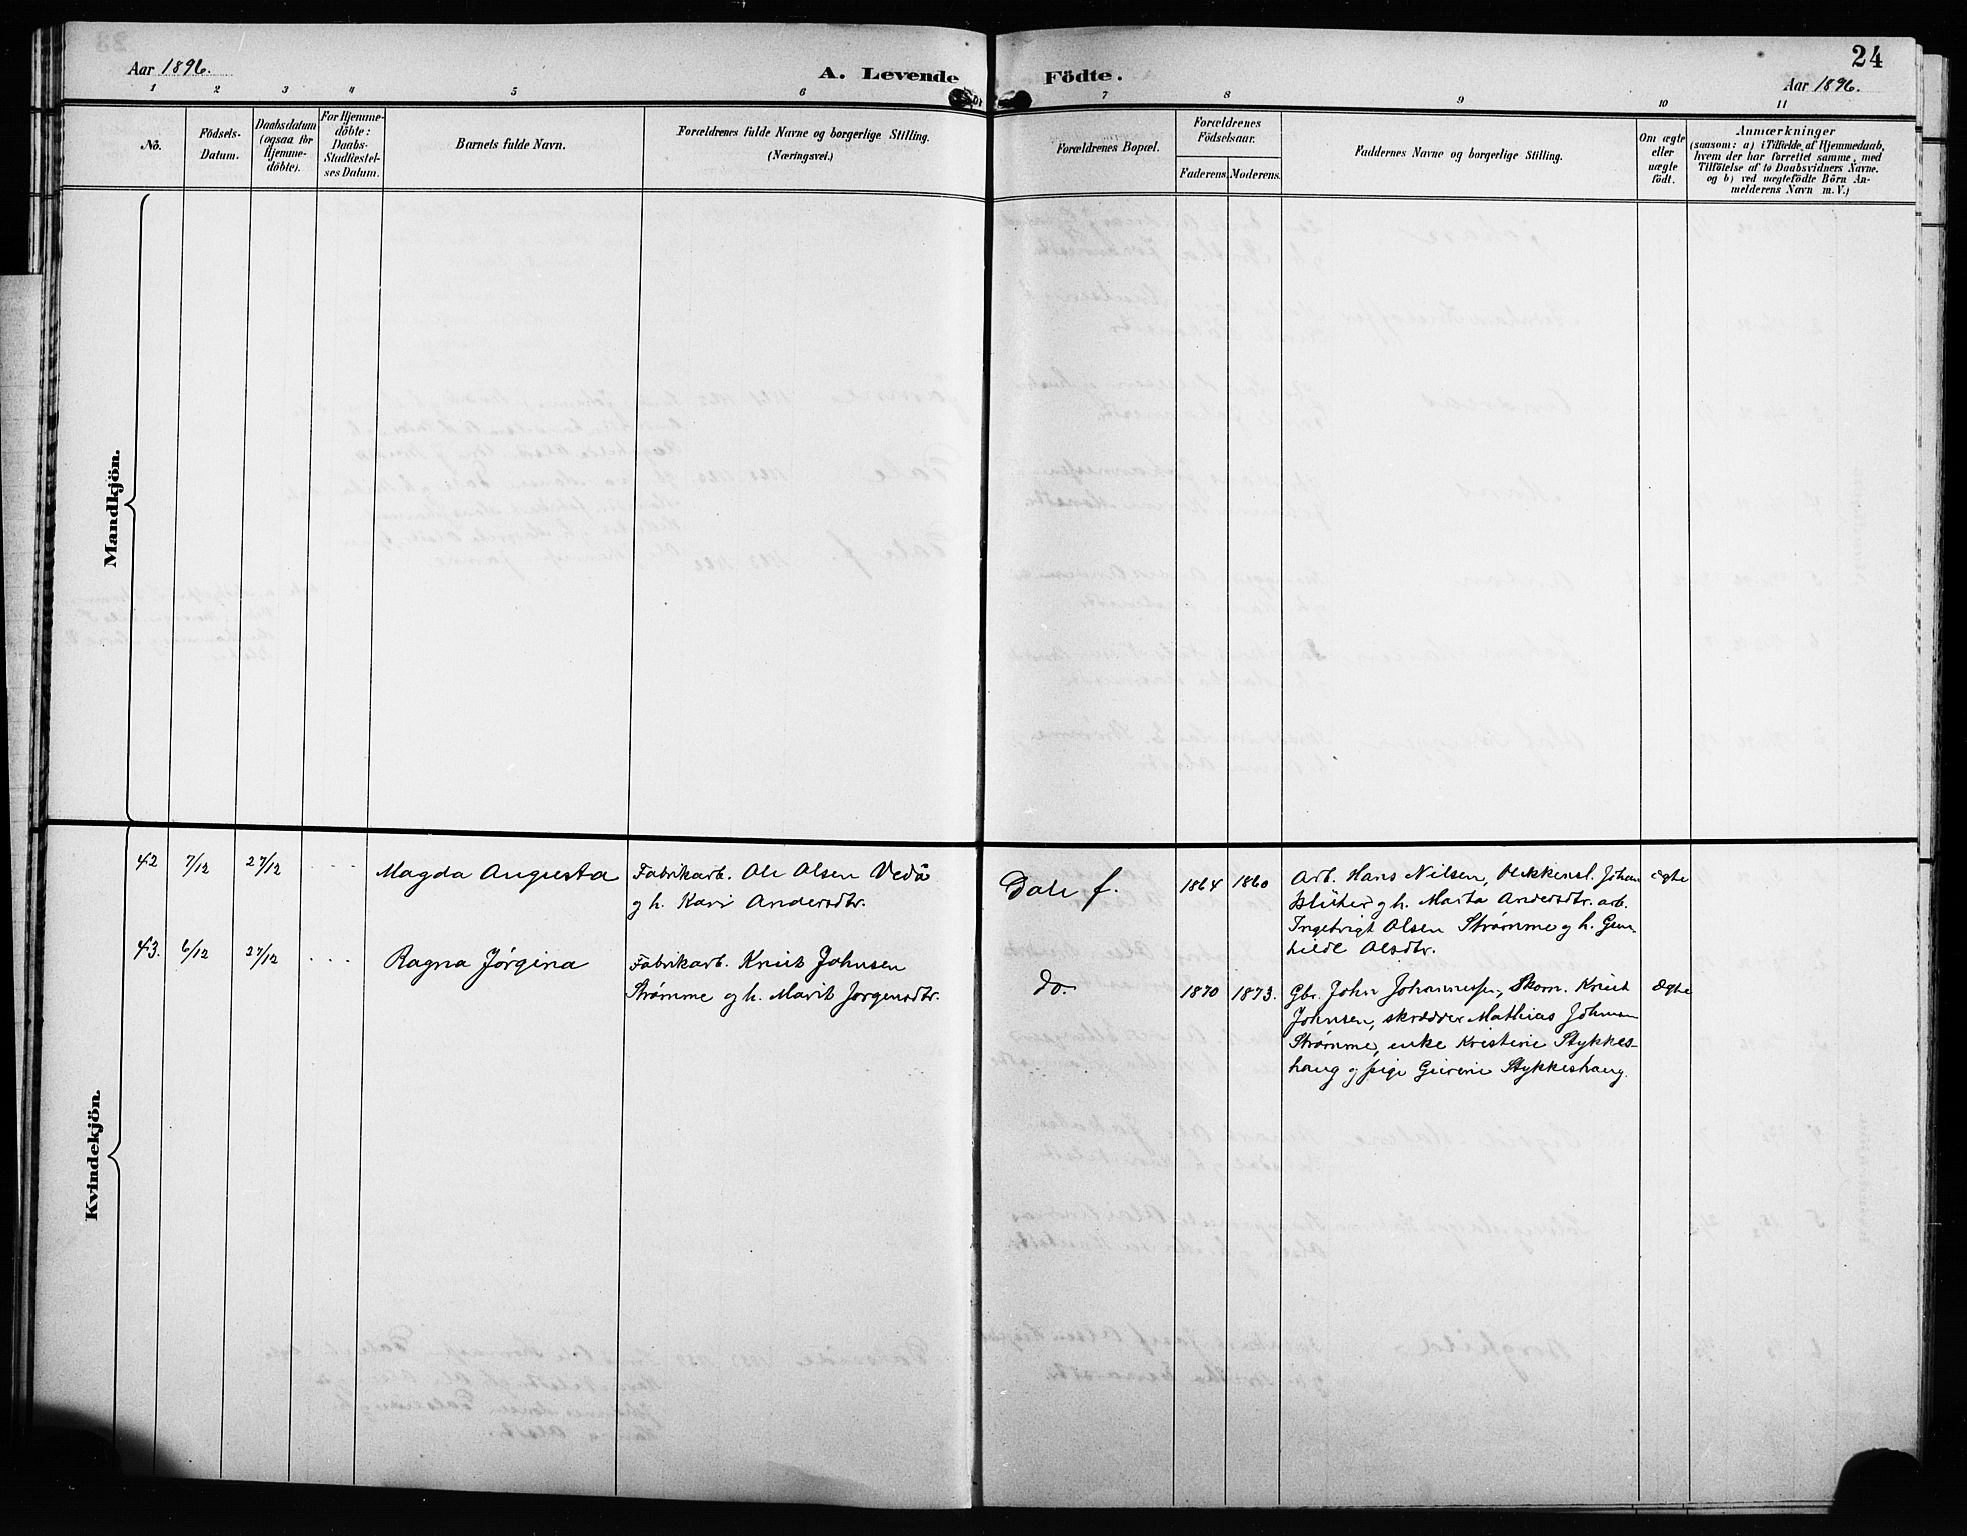 24
Aar 1896.
A. Levende Födte.
Aar 1896.
1 2 3 4 5 6 7 8 9 10 11
No.
Födsels-
Datum.
Daabsdatum
(ogsaa for
Hjemme-
döbte).
For Hjemme-
döbte:
Daabs-
Stadfæstel-
ses Datum.
Barnets fulde Navn.
Forældrenes fulde Navne og borgerlige Stilling.
(Næringsvei.)
Forældrenes Bopæl.
Forældrenes
Födselsaar.
Faderens. Moderens.
Faddernes Navne og borgerlige Stilling.
Om ægte
eller
uægte
födt.
Anmærkninger
(saasom: a) i Tilfælde af Hjemmedaab,
hvem der har forrettet samme, med
Tilföielse af to Daabsvidners Navne.
og b) ved uægtefödte Börn An-
melderens Navn m. V.)
Mandkjön.
Kvindekjön.
42 7/12 27/12 Magda Augusta
Fabrikarb. Ole Olsen Vedå
og h. Kari Andersdtr.
Dale f. 1864 1860
Arb. Hans Nilsen, Johan
og h. Marta Andersdtr. arb.
Ingebrigt Olsen Strømme og h. Gun-
hilde Olsdtr.
ægte
43. 6/12 27/12 Ragna Jørgina
Fabrikarb. Knut Johnsen
Strømme og h. Marit Jørgensdtr.
do. 1870 1873.
Gbr. John Johannessen, Skom. Knut
Johnsen, skrædder Mathias Johnsen
Strømme, enke Kristine Stykkes-
haug og pige Gurine Stykkeshaug.
Ægte